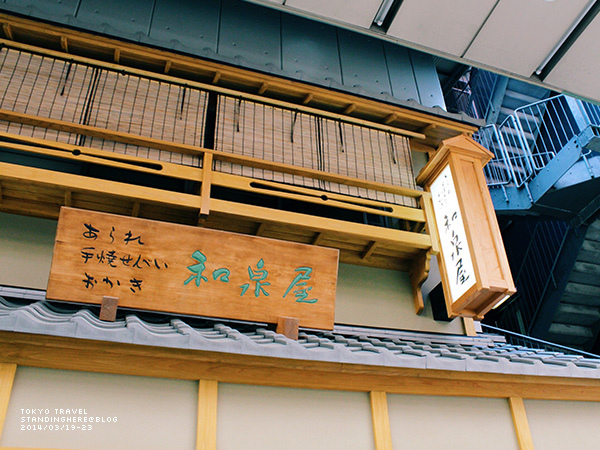 あられ
手焼せんべい
おかき
和泉屋
和泉屋
TOKYO TRAVEL
STANDINGHERE@BLOG
2014/03/19-23